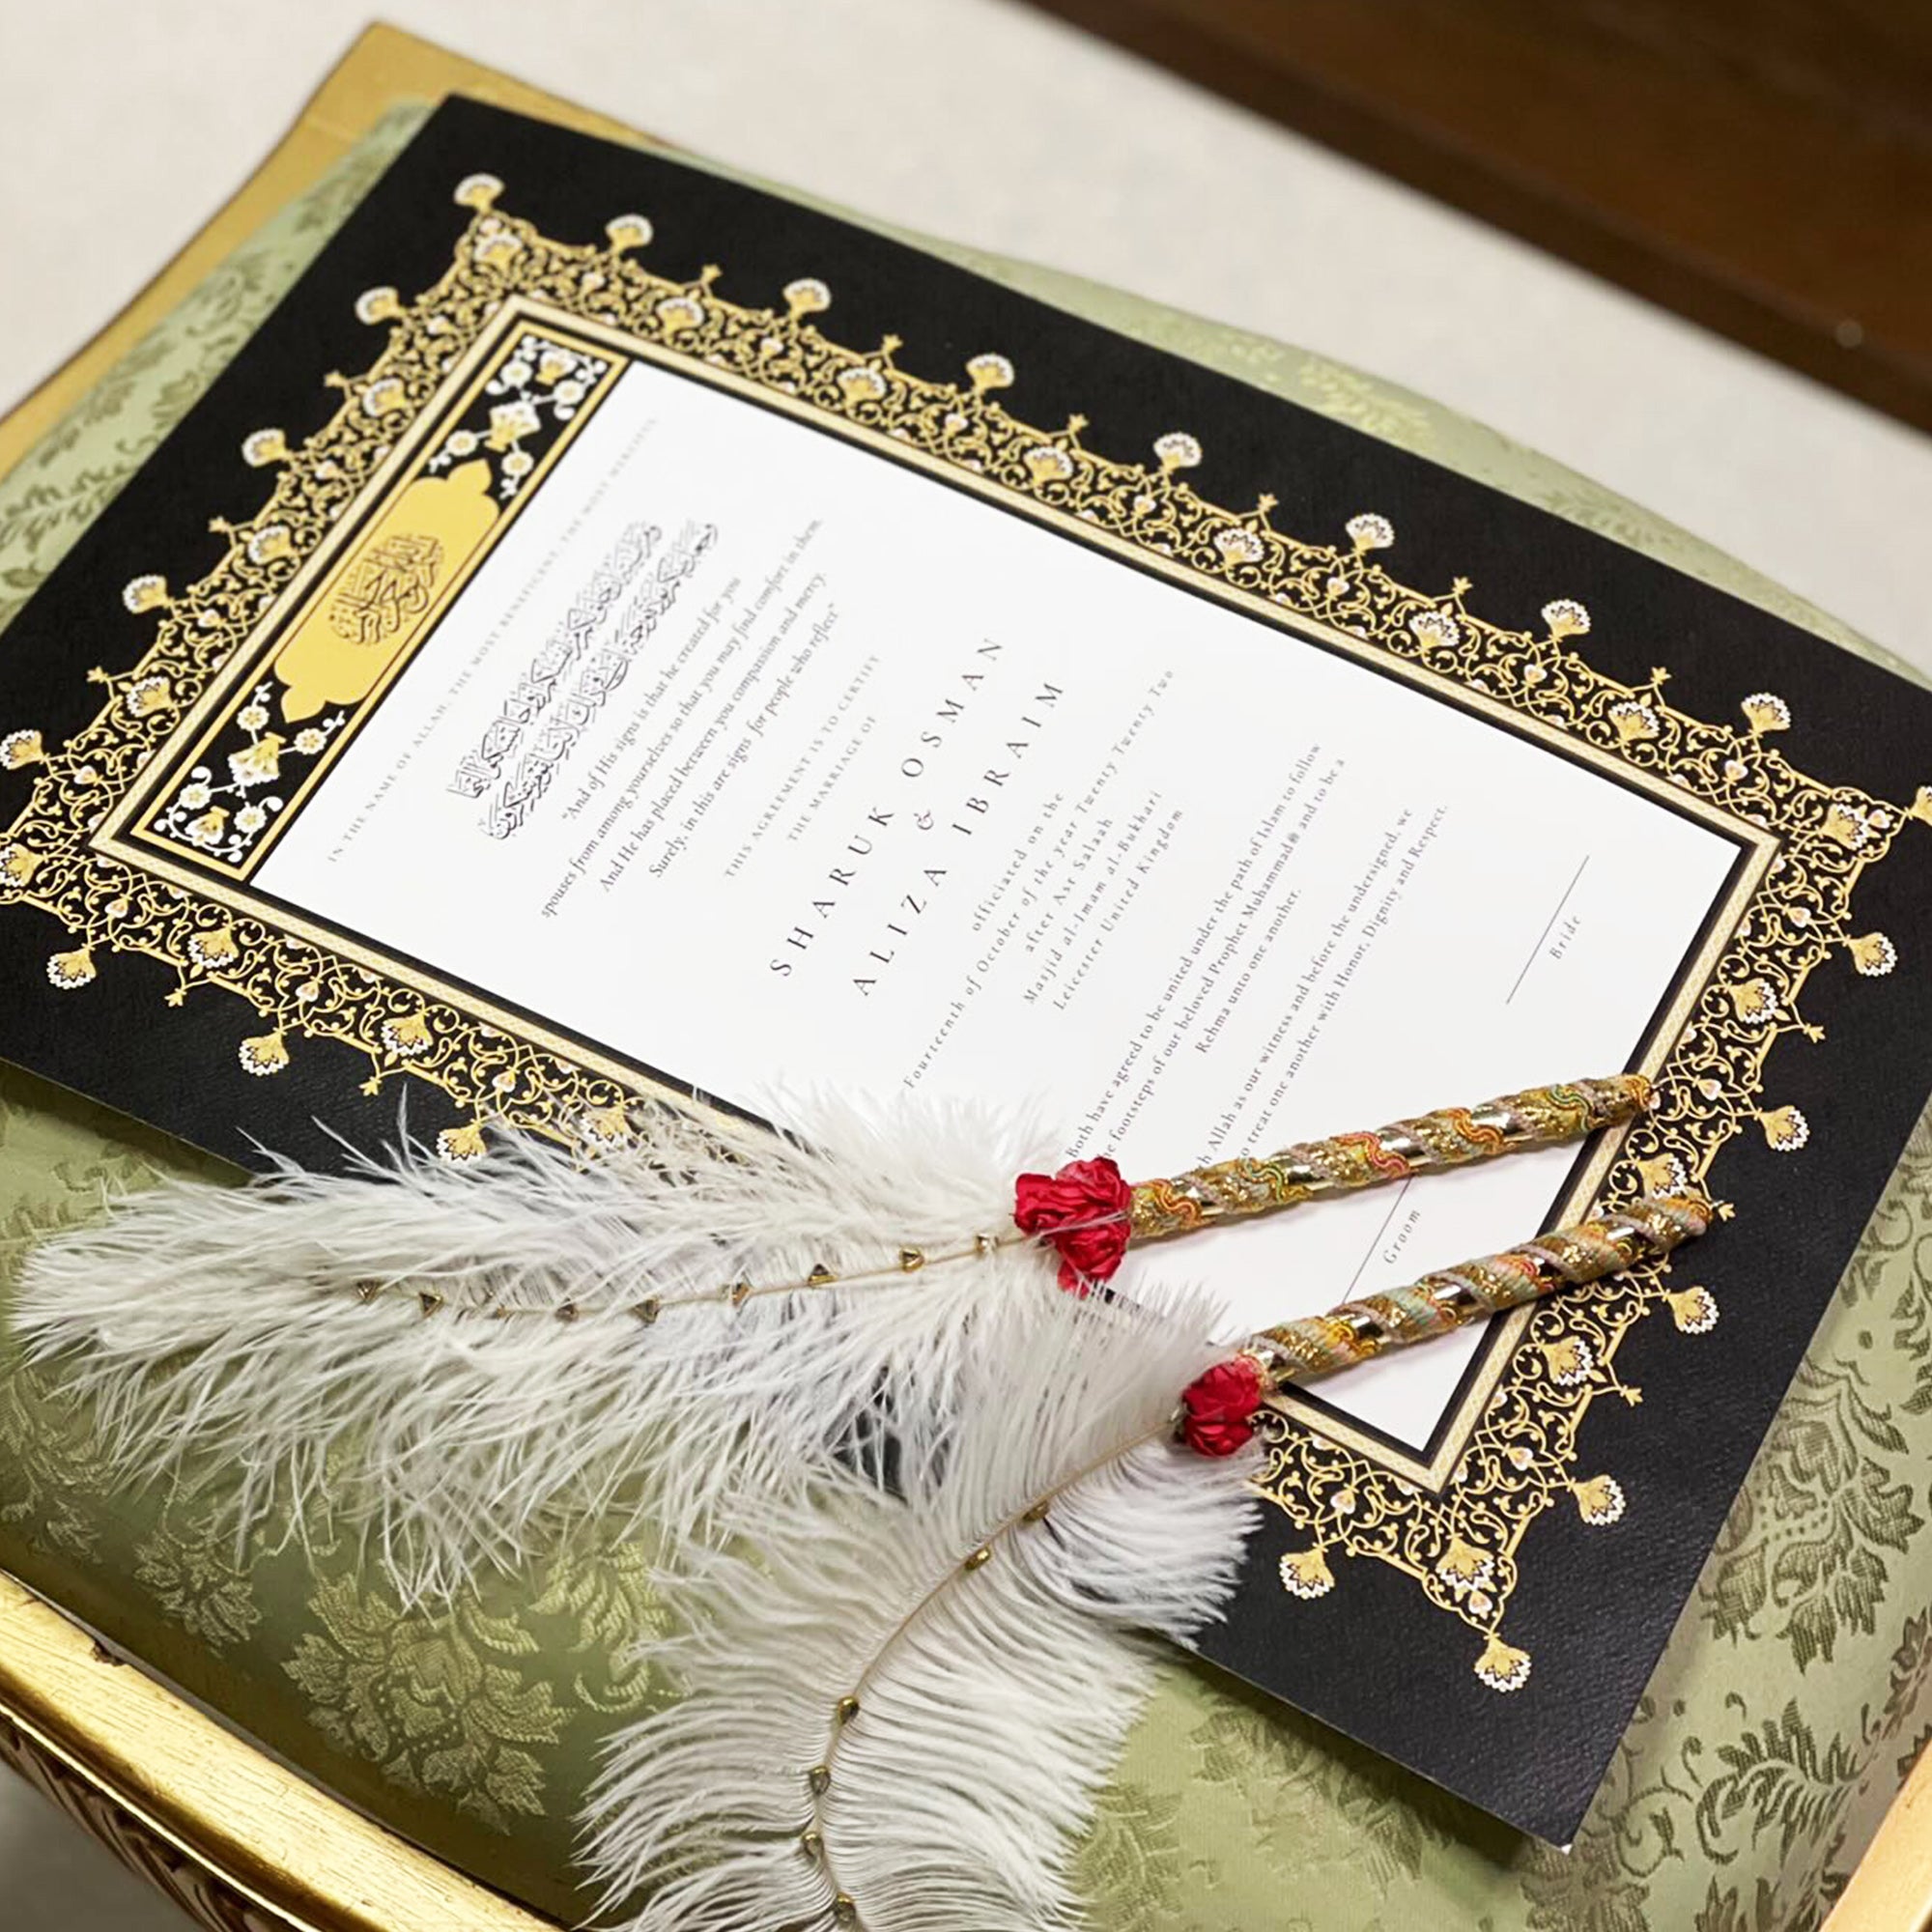 IN THE NAME OF ALLAH, THE MOST BENEFICENT, THE MOST MERCIFUL
"And of His signs is that he created for you
spouses from among yourselves so that you may find comfort in them.
And He has placed between you compassion and mercy.
Surely, in this are signs for people who reflect"
THIS AGREEMENT IS TO CERTIFY
THE MARRIAGE OF
SHARUK OSMAN
&
ALIZA IBRAIM
officiated on the
Fourteenth of October of the year Twenty Twenty Two
after Asr Salaah
Masjid al-Imam al-Bukhari
Leicester United Kingdom
Both have agreed to be united under the path of Islam to follow
footsteps of our beloved Prophet Muhammadﷺ and to be a
Rehma unto one another.
Allah as our witness and before the undersigned, we
treat one another with Honor, Dignity and Respect.
Groom
Bride